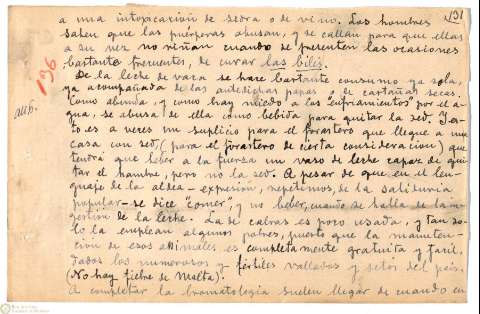 131
a una intoxicación de sidra o de vino. Los hombres
saben que las puérperas abusan, y se callan para que ellas
a su vez no riñan cuando se presenten las ocasiones
bastante frecuentes, de curar las bilis.
196
De la leche de vaca se hace bastante consumo ya sola,
ya acompañada de las antedichas papas y de castañas secas.
Como abunda, y como hay miedo a los "enfriamientos" por el a-
gua, se abusa de ella como bebida para quitar la sed. Es-
to es a veces un suplicio para el forastero que llegue a una
casa con sed, (para el forastero de cierta consideración) que
tendrá que beber a la fuerza un vaso de leche capaz de qui-
tar el hambre, pero no la sed. A pesar de que en el len-
guaje de la aldea - expresión, repetimos, de la sabiduría
popular - se dice "comer", y no beber, cuando se habla de la in-
gestión de la leche. La de cabras es poco usada, y tan so-
lo la emplean algunos pobres, puesto que la manuten-
ción de esos animales es completamente gratuita y fácil,
dados los numerosos y fértiles vallados y setos del país.
(No hay fiebre de Malta).
A completar la bromatología suelen llegar de cuando en